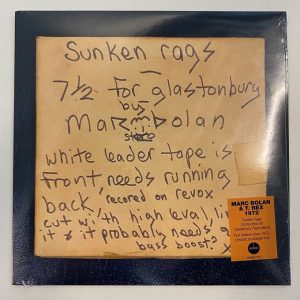 Sunken rags
7½ for glastonbury
by
Marc Bolan
stereo
white leader tape is
Front, needs running
back, recored on revox
cut with high leval, li
it & it probably needs a
bass boost?
MARC BOLAN
& T. REX
1972